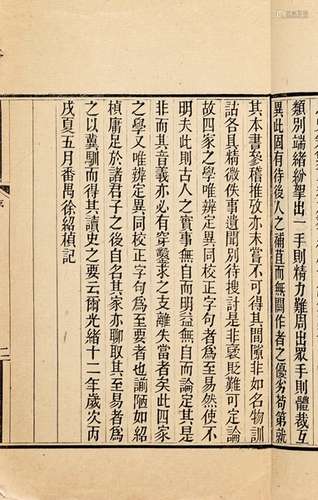 類別端緒紛挐出一手則精力難周出眾手則體裁互
異此固有待後人之補苴而無關作者之優劣苟第就
其本書參稽推攷亦未嘗不可得其間隙非如名物訓
詁各具精微佚事遺聞別待搜討是非褒貶難可定論
故四家之學唯辨定異同校正字句為至易然使不
明夫此則古人之實事無自而明益無自而論定其是
非而其音義亦必有穿鑿求之支離失當者矣此四家
之學又唯辨定異同校正字句為至要者也謭陋如紹
楨庸足於諸君子之後自名其家亦聊取其至易者為
之以冀馴而得其讀史之要云爾光緒十二年歲次丙
戌夏五月番禺徐紹楨記